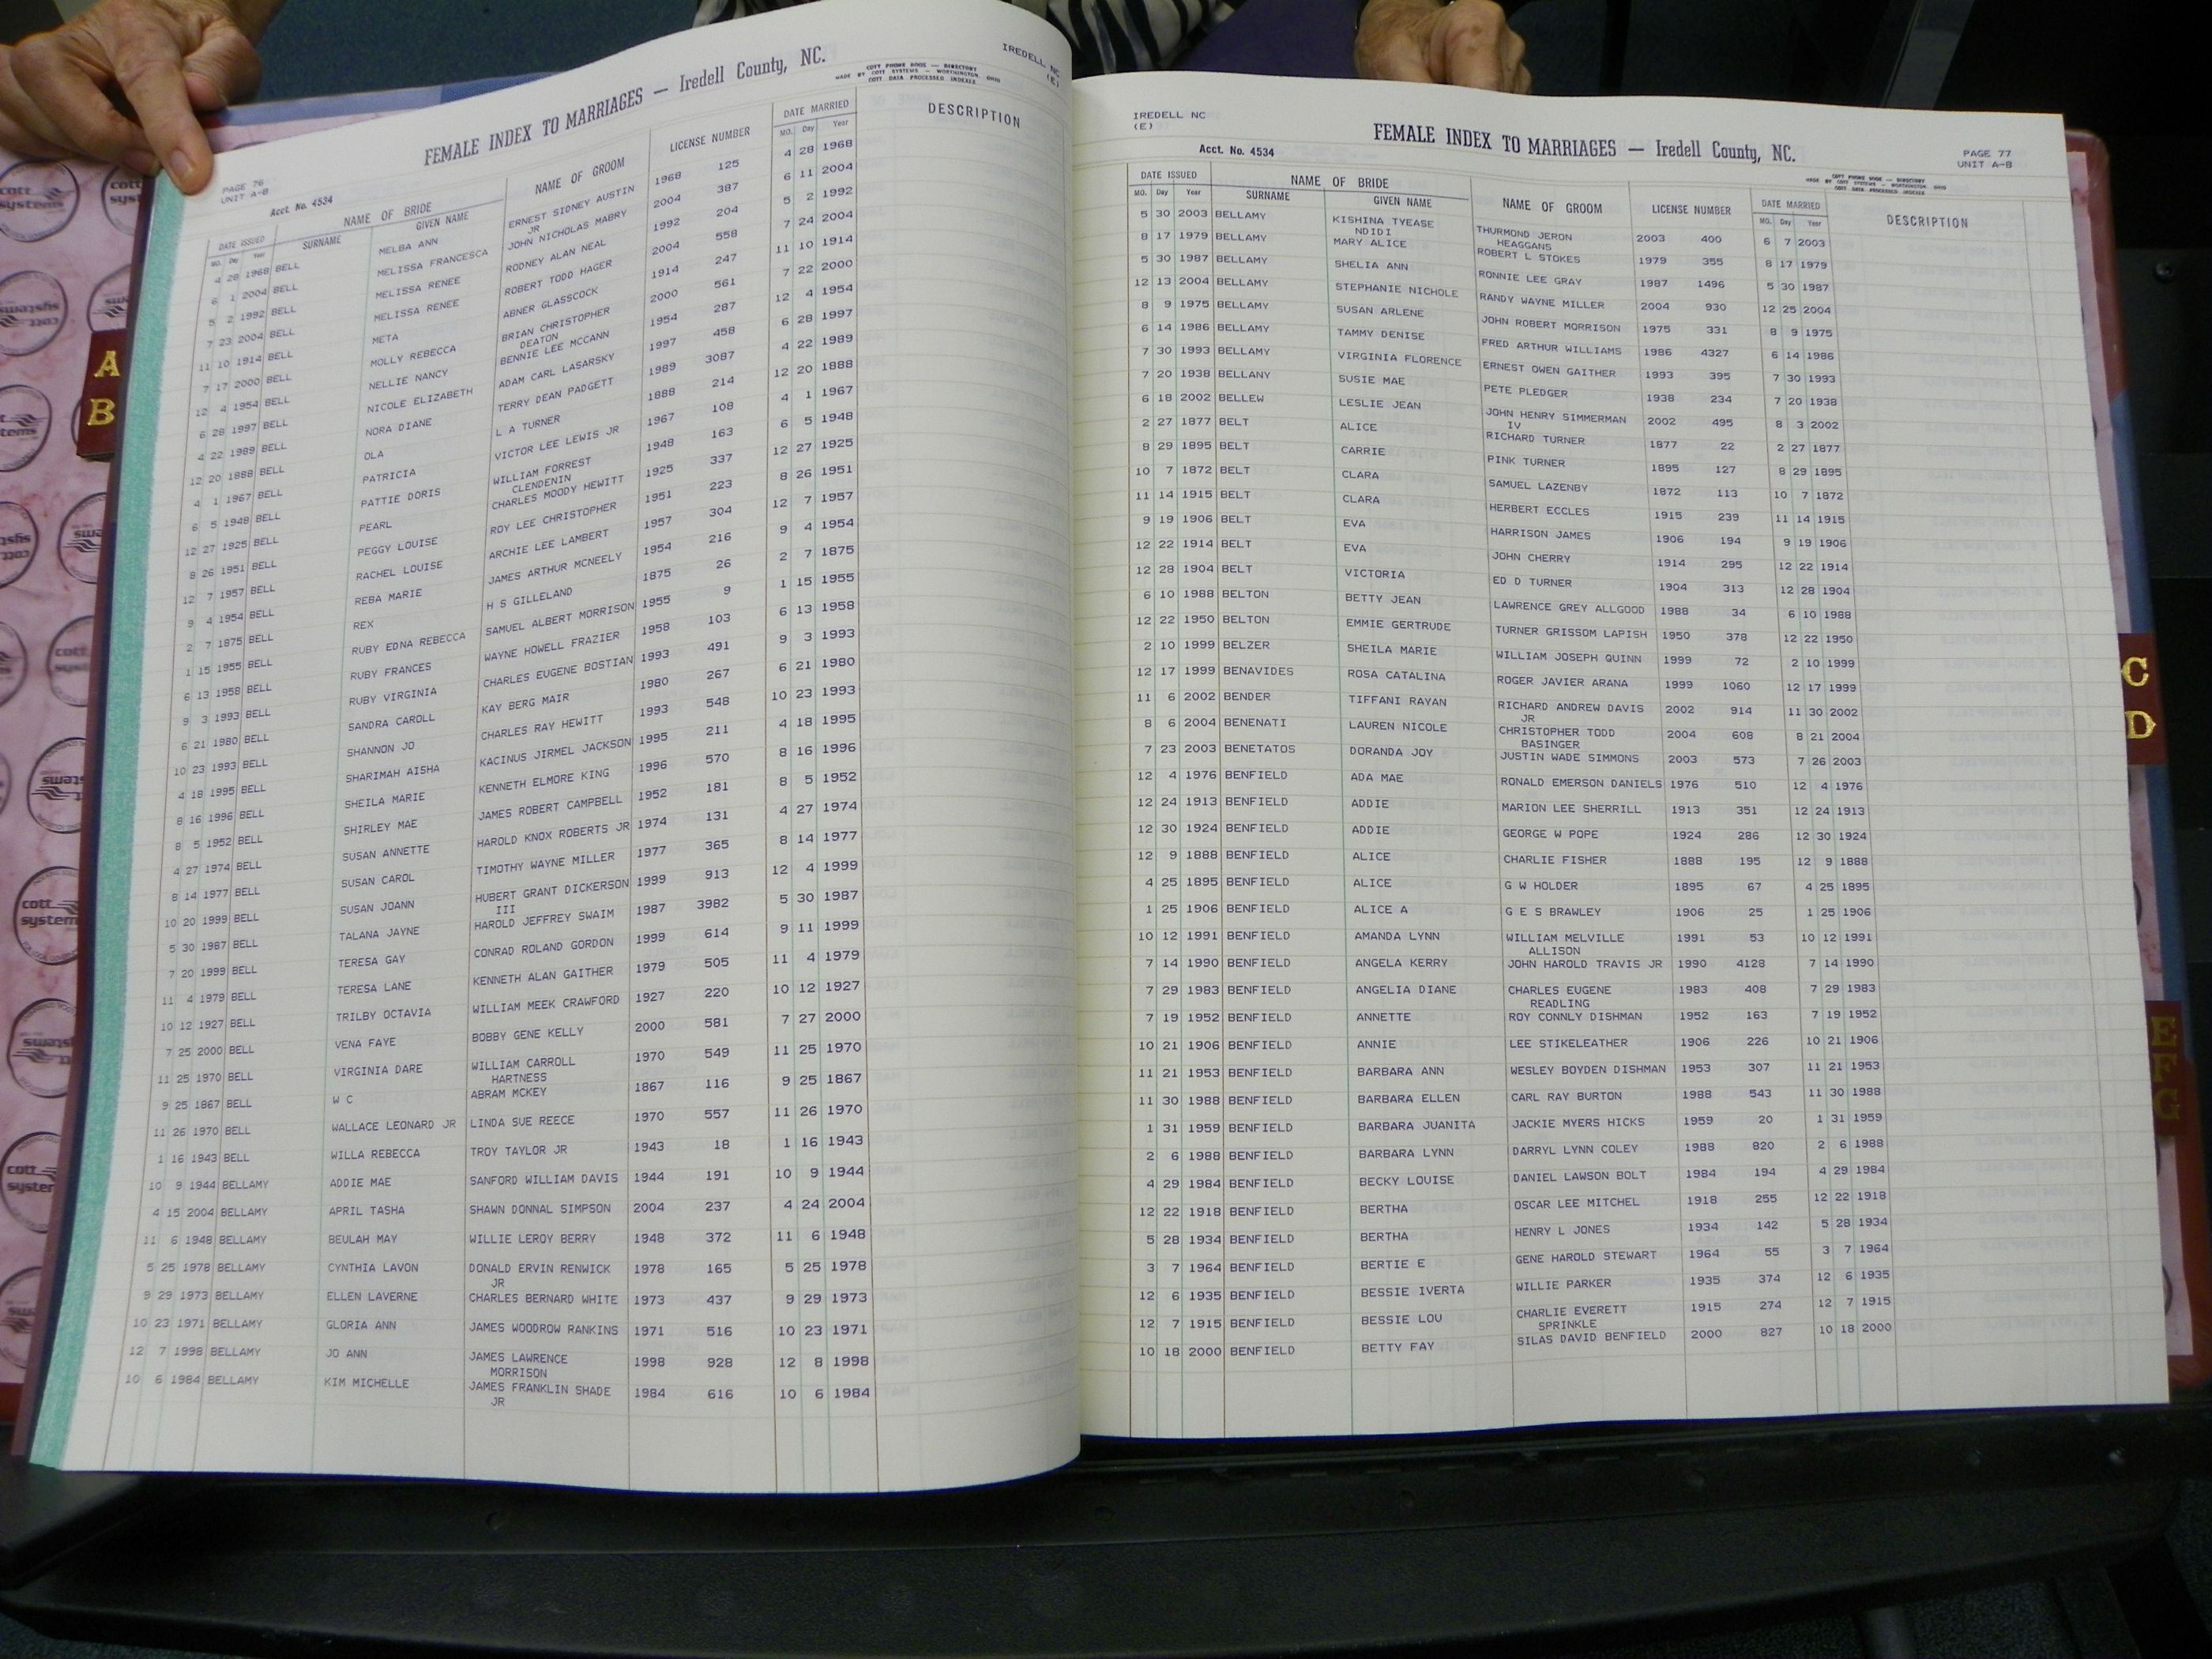 PAGE 76
UNIT A-B
Acct. No. 4534
FEMALE INDEX TO MARRIAGES — Iredell County, NC.
COTT PHONE BOOK — DIRECTORY
MADE BY COTT SYSTEMS — WORTHINGTON, OHIO
COTT DATA PROCESSED INDEXES
IREDELL NC
(E)
DATE ISSUED NAME OF BRIDE NAME OF GROOM LICENSE NUMBER DATE MARRIED DESCRIPTION
MO. Day Year SURNAME GIVEN NAME MO. Day Year
4 28 1968 BELL MELBA ANN ERNEST SIDNEY AUSTIN 1968 125 4 28 1968
JR
6 1 2004 BELL MELISSA FRANCESCA JOHN NICHOLAS MABRY 2004 387 6 11 2004
5 2 1992 BELL MELISSA RENEE RODNEY ALAN NEAL 1992 204 5 2 1992
7 23 2004 BELL MELISSA RENEE ROBERT TODD HAGER 2004 558 7 24 2004
11 10 1914 BELL META ABNER GLASSCOCK 1914 247 11 10 1914
7 17 2000 BELL MOLLY REBECCA BRIAN CHRISTOPHER 2000 561 7 22 2000
DEATON
12 4 1954 BELL NELLIE NANCY BENNIE LEE MCCANN 1954 287 12 4 1954
6 28 1997 BELL NICOLE ELIZABETH ADAM CARL LASARSKY 1997 458 6 28 1997
4 22 1989 BELL NORA DIANE TERRY DEAN PADGETT 1989 3087 4 22 1989
12 20 1888 BELL OLA L A TURNER 1888 214 12 20 1888
4 1 1967 BELL PATRICIA VICTOR LEE LEWIS JR 1967 108 4 1 1967
6 5 1948 BELL PATTIE DORIS WILLIAM FORREST 1948 163 6 5 1948
CLENDENIN
12 27 1925 BELL PEARL CHARLES MOODY HEWITT 1925 337 12 27 1925
8 26 1951 BELL PEGGY LOUISE ROY LEE CHRISTOPHER 1951 223 8 26 1951
12 7 1957 BELL RACHEL LOUISE ARCHIE LEE LAMBERT 1957 304 12 7 1957
9 4 1954 BELL REBA MARIE JAMES ARTHUR MCNEELY 1954 216 9 4 1954
2 7 1875 BELL REX H S GILLELAND 1875 26 2 7 1875
1 15 1955 BELL RUBY EDNA REBECCA SAMUEL ALBERT MORRISON 1955 9 1 15 1955
6 13 1958 BELL RUBY FRANCES WAYNE HOWELL FRAZIER 1958 103 6 13 1958
9 3 1993 BELL RUBY VIRGINIA CHARLES EUGENE BOSTIAN 1993 491 9 3 1993
6 21 1980 BELL SANDRA CAROLL KAY BERG MAIR 1980 267 6 21 1980
10 23 1993 BELL SHANNON JO CHARLES RAY HEWITT 1993 548 10 23 1993
4 18 1995 BELL SHARIMAH AISHA KACINUS JIRMEL JACKSON 1995 211 4 18 1995
8 16 1996 BELL SHEILA MARIE KENNETH ELMORE KING 1996 570 8 16 1996
8 5 1952 BELL SHIRLEY MAE JAMES ROBERT CAMPBELL 1952 181 8 5 1952
4 27 1974 BELL SUSAN ANNETTE HAROLD KNOX ROBERTS JR 1974 131 4 27 1974
8 14 1977 BELL SUSAN CAROL TIMOTHY WAYNE MILLER 1977 365 8 14 1977
10 20 1999 BELL SUSAN JOANN HUBERT GRANT DICKERSON 1999 913 12 4 1999
III
5 30 1987 BELL TALANA JAYNE HAROLD JEFFREY SWAIM 1987 3982 5 30 1987
7 20 1999 BELL TERESA GAY CONRAD ROLAND GORDON 1999 614 9 11 1999
11 4 1979 BELL TERESA LANE KENNETH ALAN GAITHER 1979 505 11 4 1979
10 12 1927 BELL TRILBY OCTAVIA WILLIAM MEEK CRAWFORD 1927 220 10 12 1927
7 25 2000 BELL VENA FAYE BOBBY GENE KELLY 2000 581 7 27 2000
11 25 1970 BELL VIRGINIA DARE WILLIAM CARROLL 1970 549 11 25 1970
HARTNESS
9 25 1867 BELL W C ABRAM MCKEY 1867 116 9 25 1867
11 26 1970 BELL WALLACE LEONARD JR LINDA SUE REECE 1970 557 11 26 1970
1 16 1943 BELL WILLA REBECCA TROY TAYLOR JR 1943 18 1 16 1943
10 9 1944 BELLAMY ADDIE MAE SANFORD WILLIAM DAVIS 1944 191 10 9 1944
4 15 2004 BELLAMY APRIL TASHA SHAWN DONNAL SIMPSON 2004 237 4 24 2004
11 6 1948 BELLAMY BEULAH MAY WILLIE LEROY BERRY 1948 372 11 6 1948
5 25 1978 BELLAMY CYNTHIA LAVON DONALD ERVIN RENWICK 1978 165 5 25 1978
JR
9 29 1973 BELLAMY ELLEN LAVERNE CHARLES BERNARD WHITE 1973 437 9 29 1973
10 23 1971 BELLAMY GLORIA ANN JAMES WOODROW RANKINS 1971 516 10 23 1971
12 7 1998 BELLAMY JO ANN JAMES LAWRENCE 1998 928 12 8 1998
MORRISON
10 6 1984 BELLAMY KIM MICHELLE JAMES FRANKLIN SHADE 1984 616 10 6 1984
JR
IREDELL NC
(E)
Acct. No. 4534
FEMALE INDEX TO MARRIAGES — Iredell County, NC.
PAGE 77
UNIT A-B
COTT PHONE BOOK — DIRECTORY
MADE BY COTT SYSTEMS — WORTHINGTON, OHIO
COTT DATA PROCESSED INDEXES
DATE ISSUED NAME OF BRIDE NAME OF GROOM LICENSE NUMBER DATE MARRIED DESCRIPTION
MO. Day Year SURNAME GIVEN NAME MO. Day Year
5 30 2003 BELLAMY KISHINA TYEASE THURMOND JERON 2003 400 6 7 2003
NDIDI HEAGGANS
8 17 1979 BELLAMY MARY ALICE ROBERT L STOKES 1979 355 8 17 1979
5 30 1987 BELLAMY SHELIA ANN RONNIE LEE GRAY 1987 1496 5 30 1987
12 13 2004 BELLAMY STEPHANIE NICHOLE RANDY WAYNE MILLER 2004 930 12 25 2004
8 9 1975 BELLAMY SUSAN ARLENE JOHN ROBERT MORRISON 1975 331 8 9 1975
6 14 1986 BELLAMY TAMMY DENISE FRED ARTHUR WILLIAMS 1986 4327 6 14 1986
7 30 1993 BELLAMY VIRGINIA FLORENCE ERNEST OWEN GAITHER 1993 395 7 30 1993
7 20 1938 BELLANY SUSIE MAE PETE PLEDGER 1938 234 7 20 1938
6 18 2002 BELLEW LESLIE JEAN JOHN HENRY SIMMERMAN 2002 495 8 3 2002
IV
2 27 1877 BELT ALICE RICHARD TURNER 1877 22 2 27 1877
8 29 1895 BELT CARRIE PINK TURNER 1895 127 8 29 1895
10 7 1872 BELT CLARA SAMUEL LAZENBY 1872 113 10 7 1872
11 14 1915 BELT CLARA HERBERT ECCLES 1915 239 11 14 1915
9 19 1906 BELT EVA HARRISON JAMES 1906 194 9 19 1906
12 22 1914 BELT EVA JOHN CHERRY 1914 295 12 22 1914
12 28 1904 BELT VICTORIA ED D TURNER 1904 313 12 28 1904
6 10 1988 BELTON BETTY JEAN LAWRENCE GREY ALLGOOD 1988 34 6 10 1988
12 22 1950 BELTON EMMIE GERTRUDE TURNER GRISSOM LAPISH 1950 378 12 22 1950
2 10 1999 BELZER SHEILA MARIE WILLIAM JOSEPH QUINN 1999 72 2 10 1999
12 17 1999 BENAVIDES ROSA CATALINA ROGER JAVIER ARANA 1999 1060 12 17 1999
11 6 2002 BENDER TIFFANI RAYAN RICHARD ANDREW DAVIS 2002 914 11 30 2002
JR
8 6 2004 BENENATI LAUREN NICOLE CHRISTOPHER TODD 2004 608 8 21 2004
BASINGER
7 23 2003 BENETATOS DORANDA JOY JUSTIN WADE SIMMONS 2003 573 7 26 2003
12 4 1976 BENFIELD ADA MAE RONALD EMERSON DANIELS 1976 510 12 4 1976
12 24 1913 BENFIELD ADDIE MARION LEE SHERRILL 1913 351 12 24 1913
12 30 1924 BENFIELD ADDIE GEORGE W POPE 1924 286 12 30 1924
12 9 1888 BENFIELD ALICE CHARLIE FISHER 1888 195 12 9 1888
4 25 1895 BENFIELD ALICE G W HOLDER 1895 67 4 25 1895
1 25 1906 BENFIELD ALICE A G E S BRAWLEY 1906 25 1 25 1906
10 12 1991 BENFIELD AMANDA LYNN WILLIAM MELVILLE 1991 53 10 12 1991
ALLISON
7 14 1990 BENFIELD ANGELA KERRY JOHN HAROLD TRAVIS JR 1990 4128 7 14 1990
7 29 1983 BENFIELD ANGELIA DIANE CHARLES EUGENE 1983 408 7 29 1983
READLING
7 19 1952 BENFIELD ANNETTE ROY CONNLY DISHMAN 1952 163 7 19 1952
10 21 1906 BENFIELD ANNIE LEE STIKELEATHER 1906 226 10 21 1906
11 21 1953 BENFIELD BARBARA ANN WESLEY BOYDEN DISHMAN 1953 307 11 21 1953
11 30 1988 BENFIELD BARBARA ELLEN CARL RAY BURTON 1988 543 11 30 1988
1 31 1959 BENFIELD BARBARA JUANITA JACKIE MYERS HICKS 1959 20 1 31 1959
2 6 1988 BENFIELD BARBARA LYNN DARRYL LYNN COLEY 1988 820 2 6 1988
4 29 1984 BENFIELD BECKY LOUISE DANIEL LAWSON BOLT 1984 194 4 29 1984
12 22 1918 BENFIELD BERTHA OSCAR LEE MITCHEL 1918 255 12 22 1918
5 28 1934 BENFIELD BERTHA HENRY L JONES 1934 142 5 28 1934
3 7 1964 BENFIELD BERTIE E GENE HAROLD STEWART 1964 55 3 7 1964
12 6 1935 BENFIELD BESSIE IVERTA WILLIE PARKER 1935 374 12 6 1935
12 7 1915 BENFIELD BESSIE LOU CHARLIE EVERETT 1915 274 12 7 1915
SPRINKLE
10 18 2000 BENFIELD BETTY FAY SILAS DAVID BENFIELD 2000 827 10 18 2000
A
B
C
D
E
F
G
cott
systems